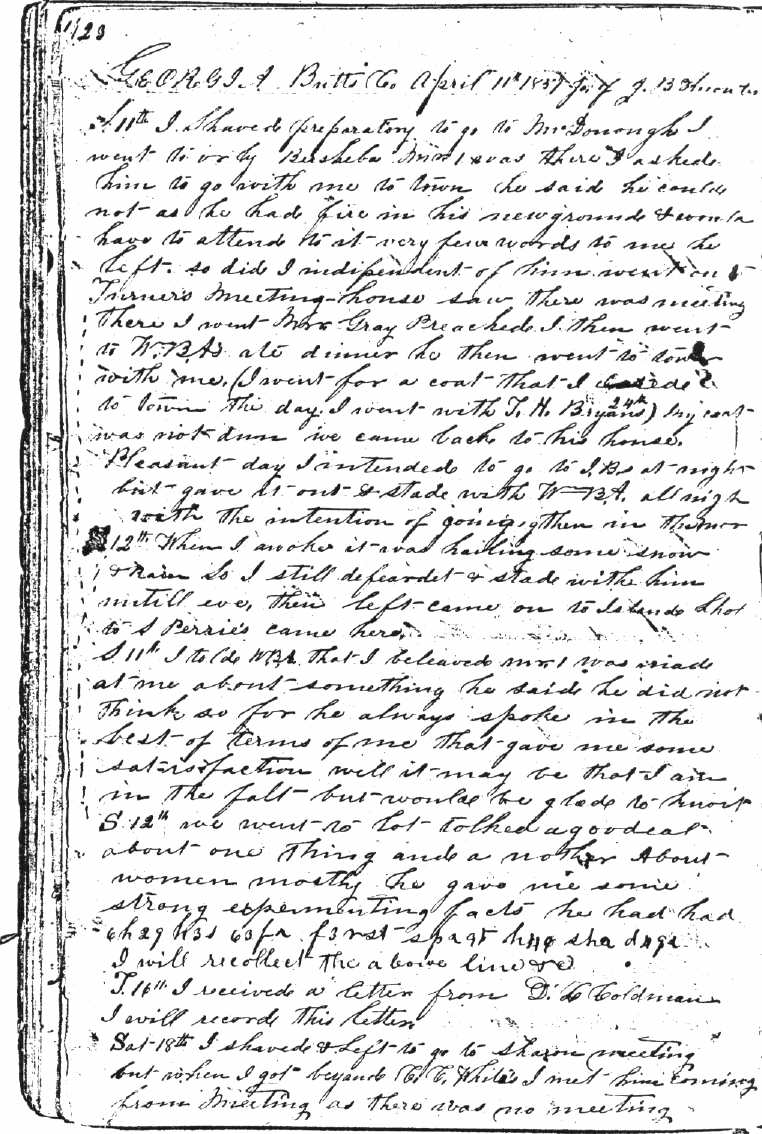 123
GEORGIA Butts Co April 11th 1857 J. of J. B
S. 11th I Shaved preparatory to go to McDonough I
went to or by Bersheba Mr 1 was there I askede
him to go with me to town he said he coulde
not as he had fire in his newgrounde & woulde
have to attende to it very few words to me he
left. so did I indipendent of him went on
Turners Meeting-house saw there was meeting
there I went Mr Gray Preachede I then went
to W.B.As ate dinner he then went to town
with me. (I went for a coat that I
to town the day I went with T. H. Bryans 24th) my coat
was not dun we came back to his house.
Pleasant day I intended to go to J. Bs at night
but gave it out & stade with W-B.A. all nigh
with the intention of going then in the mor
12th When I awoke it was hailing some snow
& Rain So I still defeardet & stade with him
untill eve, then left came on to Islande Shol
to S Perrie's came here.
S 11th I tolde W.B.A. that I beleaved Mr 1 was made
at me about something he said he did not
think so for he always spoke in the
best of terms of me that gave me some
satisfaction well it may be that I am
in the falt but woulde be glade to know it
S 12th we went to lot tolked a good eal
about one thing ande a nother About
women mostly he gave me some
strong experimenting facts he had had
6h29 h3s 63fa f3rst spa9t h49 sha d49t
I will recollect the above line &c
T. 16th I received a letter from D. L Coldman
I will recorde this letter
Sat 18th I shavede & left to go to Sharon meeting
but when I got beyande C. C. White's I met him coming
from Meeting as there was no meeting